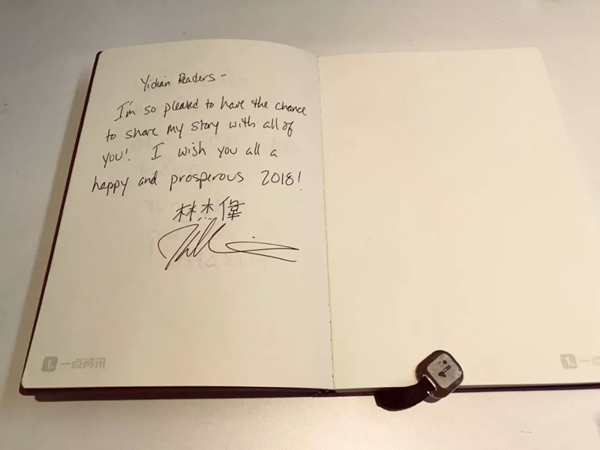 Yidian Readers –
I'm so pleased to have the chance
to share my story with all of
you! I wish you all a
happy and prosperous 2018!
林杰偉
一点资讯